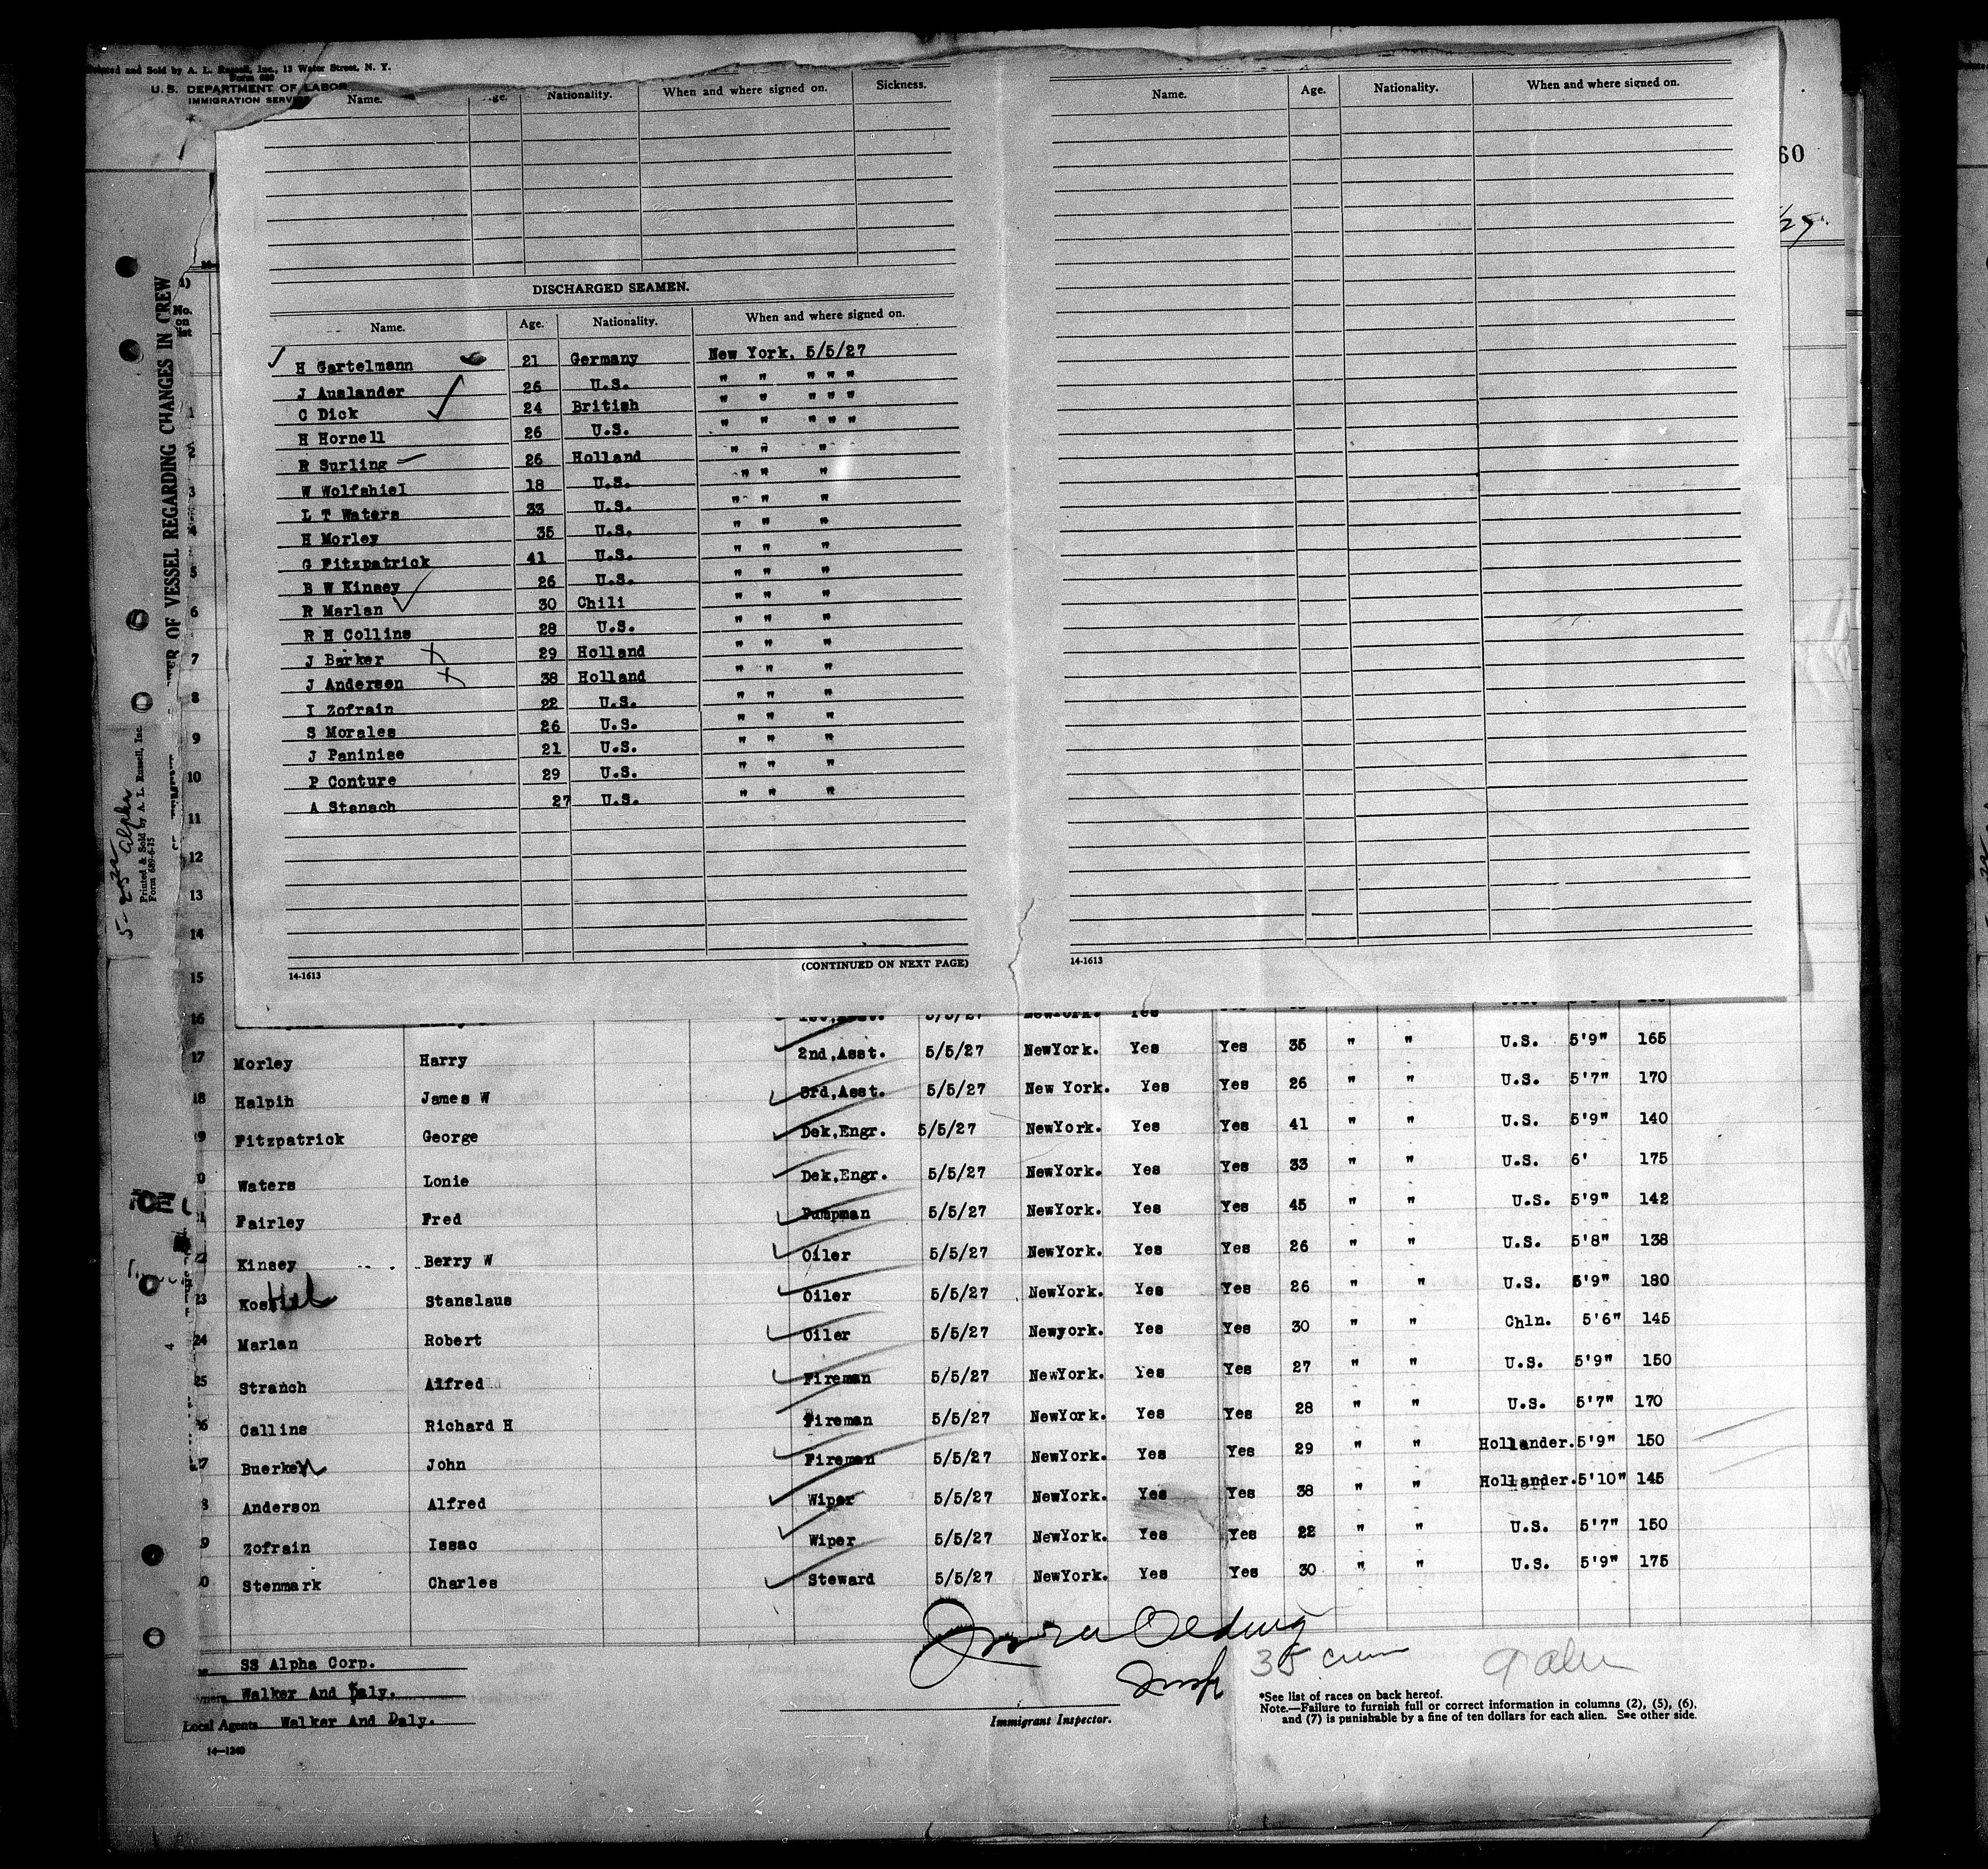 Printed and Sold by A. L. Russell, Inc., 13 Water Street, N. Y.
Form 689
U.S. DEPARTMENT OF LABOR
IMMIGRATION SERVICE
Name. Age. Nationality. When and where signed on. Sickness.
DISCHARGED SEAMEN.
Name. Age. Nationality. When and where signed on.
H Gartelmann 21 Germany New York. 5/5/27
J Auslander 26 U.S. " " " " "
C Dick 24 British " " " " "
H Hornell 26 U.S. " " " " "
R Surling 26 Holland " " "
W Wolfshiel 18 U.S. " " "
L T Waters 33 U.S. " " "
H Morley 35 U.S. " " "
G Fitzpatrick 41 U.S. " " "
B W Kinsey 26 U.S. " " "
R Marlan 30 Chili " " "
R H Collins 28 U.S. " " "
J Barker 29 Holland " " "
J Andersen 38 Holland " " "
I Zofrain 22 U.S. " " "
S Morales 26 U.S. " " "
J Paninise 21 U.S. " " "
P Conture 29 U.S. " " "
A Stanach 27 U.S. " " "
14-1613 (CONTINUED ON NEXT PAGE)
Name. Age. Nationality. When and where signed on.
14-1613
60
OF VESSEL REGARDING CHANGES IN CREW
Printed & Sold by A. L. Russell, Inc.
Form 689-6-15
No.
on
list
1
2
3
4
5
6
7
8
9
10
11
12
13
14
15
16 5/5/27 NewYork. Yes
17 Morley Harry 2nd,Asst. 5/5/27 NewYork. Yes Yes 35 " " U.S. 5'9" 165
18 Halpin James W 3rd,Asst. 5/5/27 New York. Yes Yes 26 " " U.S. 5'7" 170
9 Fitzpatrick George Dek,Engr. 5/5/27 NewYork. Yes Yes 41 " " U.S. 5'9" 140
0 Waters Lonie Dek,Engr. 5/5/27 NewYork. Yes Yes 33 " " U.S. 6' 175
21 Fairley Fred Pumpman 5/5/27 NewYork. Yes Yes 45 " " U.S. 5'9" 142
22 Kinsey Berry W Oiler 5/5/27 NewYork. Yes Yes 26 " " U.S. 5'8" 138
23 Stanslaus Oiler 5/5/27 NewYork. Yes Yes 26 " " U.S. 5'9" 180
24 Marlan Robert Oiler 5/5/27 Newyork. Yes Yes 30 " " Chln. 5'6" 145
25 Stranch Alfred Fireman 5/5/27 NewYork. Yes Yes 27 " " U.S. 5'9" 150
26 Callins Richard H Fireman 5/5/27 NewYork. Yes Yes 28 " " U.S. 5'7" 170
27 Buerken John Fireman 5/5/27 NewYork. Yes Yes 29 " " Hollander. 5'9" 150
8 Anderson Alfred Wiper 5/5/27 NewYork. Yes Yes 38 " " Hollander. 5'10" 145
9 Zofrain Issac Wiper 5/5/27 NewYork. Yes Yes 22 " " U.S. 5'7" 150
0 Stenmark Charles Steward 5/5/27 NewYork. Yes Yes 30 " " U.S. 5'9" 175
SS Alpha Corp.
Walker And Daly.
Local Agents Walker And Daly.
14-1240
Insp
Immigrant Inspector.
35 crew
*See list of races on back hereof.
Note.—Failure to furnish full or correct information in columns (2), (5), (6),
and (7) is punishable by a fine of ten dollars for each alien. See other side.